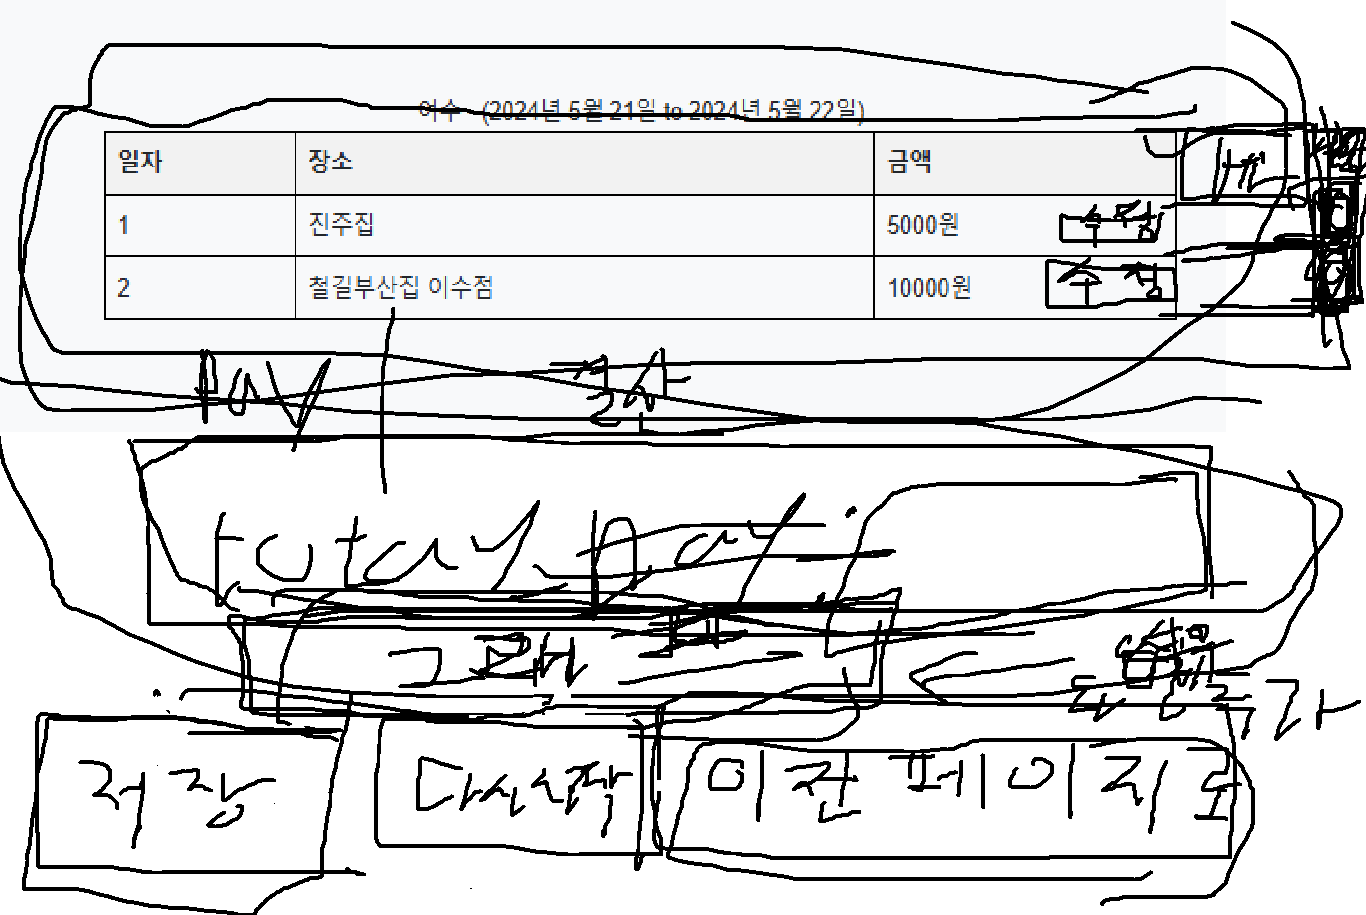 여수 (2024년 5월 21일 to 2024년 5월 22일)
일자 장소 금액
1 진주집 5000원 수정
2 철길부산집 이수점 10000원 수정
Pay
total pay
그래프
추가
저장 다시시작 이전페이지로